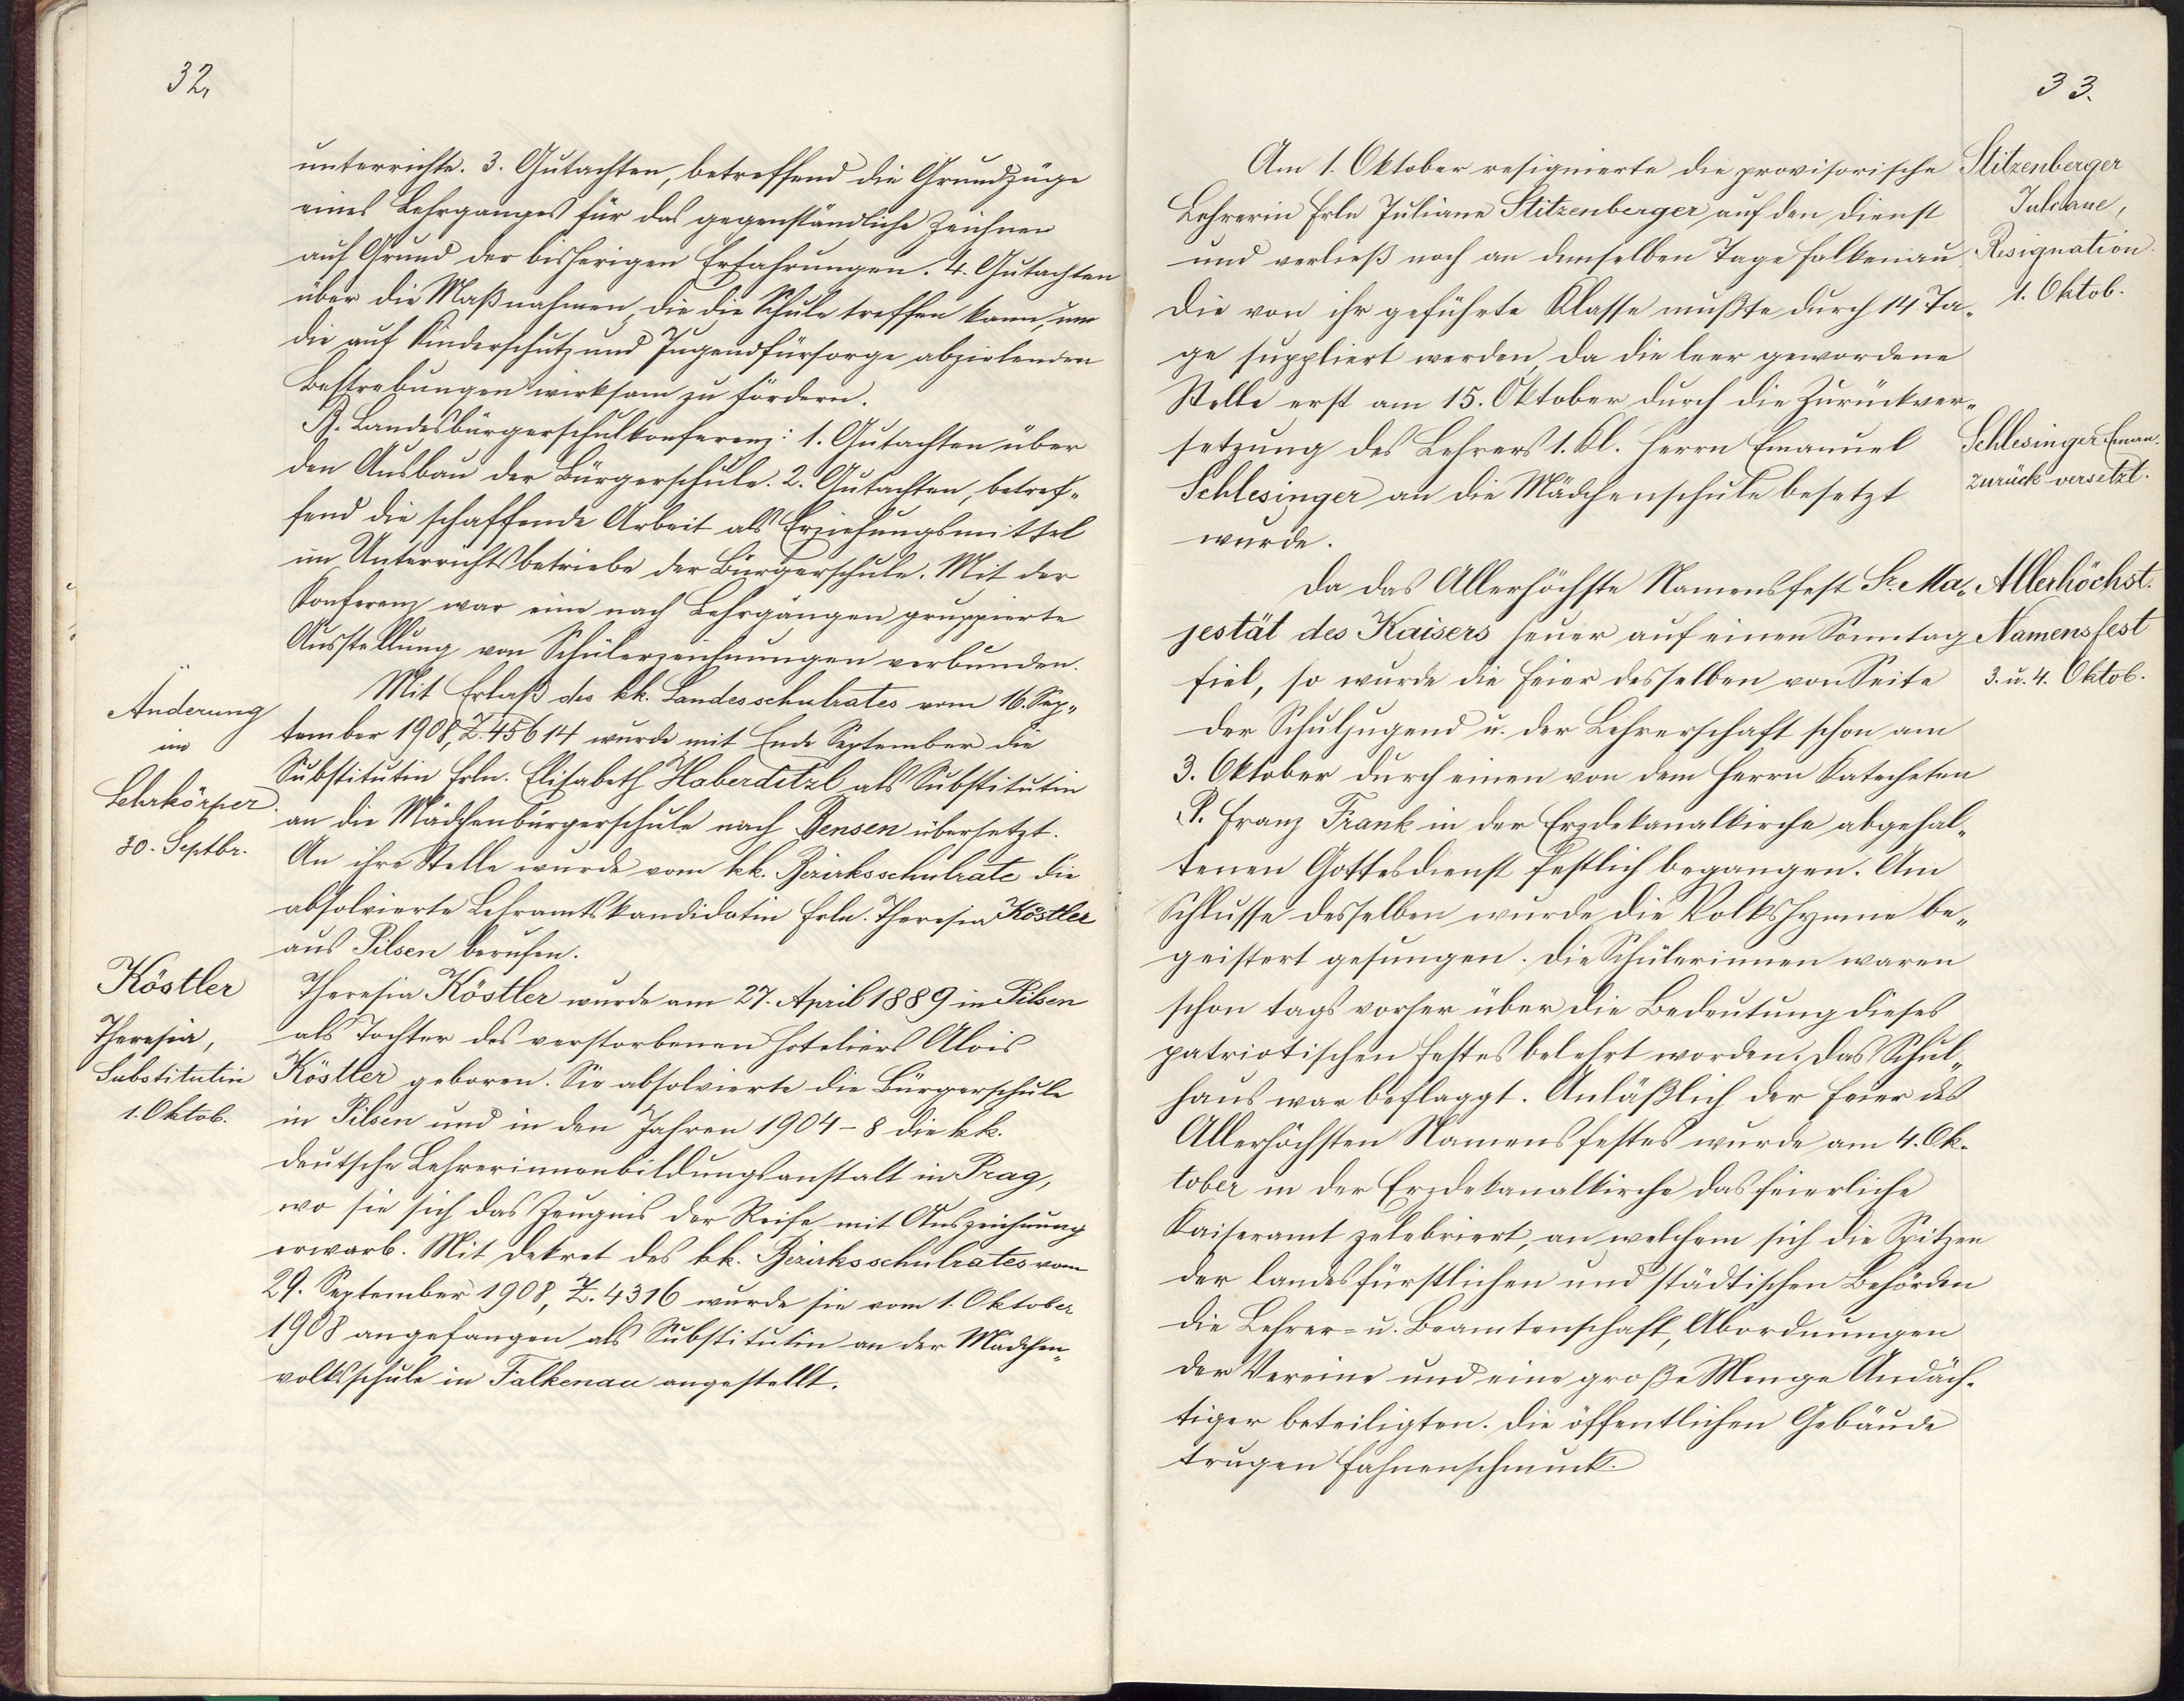 32.
unterrichte. 3. Gutachten, betreffend die Grundzüge
eines Lehrganges für das gegenständliche Zeichnen
auf Grund der bisherigen Erfahrungen. 4. Gutachten
über die Maßnahmen, die die Schule treffen kann, um
die auf Kinderschutz und Jugendfürsorge abzielenden
Bestrebungen wirksam zu fördern.
B. Landesbürgerschulkonferenz: 1. Gutachten über
den Ausbau der Bürgerschule. 2. Gutachten, betref-
fend die schaffende Arbeit als Erziehungsmittel
im Unterrichtsbetriebe der Bürgerschule. Mit der
Konferenz war eine nach Lehrgängen gruppierte
Ausstellung von Schülerzeichnungen verbunden.
Änderung
im
Lehrkörper.
30. Septbr.
Mit Erlaß des kk. Landesschulrates vom 16. Sep-
tember 1908, Z. 45614 wurde mit Ende September die
Substitutin Frln. Elisabeth Haberditzl als Substitutin
an die Mädchenbürgerschule nach Bensen übersetzt.
An ihre Stelle wurde vom kk. Bezirksschulrate die
absolvierte Lehramtskandidatin Frln. Theresia Köstler
aus Pilsen berufen.
Köstler
Theresia,
Substitutin
1. Oktob.
Theresia Köstler wurde am 27. April 1889 in Pilsen
als Tochter des verstorbenen Hoteliers Alois
Köstler geboren. Sie absolvierte die Bürgerschule
in Pilsen und in den Jahren 1904-8 die kk.
deutsche Lehrerinnenbildungsanstalt in Prag,
wo sie sich das Zeugnis der Reife mit Auszeichnung
erwarb. Mit Dekret des kk. Bezirksschulrates vom
29. September 1908, Z. 4316 wurde sie vom 1. Oktober
1908 angefangen als Substitutin an der Mädchen-
volksschule in Falkenau angestellt.
33.
Am 1. Oktober resignierte die provisorische
Lehrerin Frln Juliane Stitzenberger auf den Dienst
und verließ noch an demselben Tage Falkenau.
Die von ihr geführte Klasse mußte durch 14 Ta-
ge suppliert werden, da die leer gewordene
Stelle erst am 15. Oktober durch die Zurückver-
setzung des Lehrers 1. Kl. Herrn Emanuel
Schlesinger an die Mädchenschule besetzt
wurde.
Stitzenberger
Juliane,
Resignation.
1. Oktob.
Schlesinger Eman.
zurück versetzt.
Da das Allerhöchste Namensfest Sr. Ma-
jestät des Kaisers heuer auf einen Sonntag
fiel, so wurde die Feier desselben von Seite
der Schuljugend u. der Lehrerschaft schon am
3. Oktober durch einen von dem Herrn Katecheten
P. Franz Frank in der Erzdekanalkirche abgehal-
tenen Gottesdienst festlich begangen. Am
Schlusse desselben wurde die Volkshymne be-
geistert gesungen. Die Schülerinnen waren
schon tags vorher über die Bedeutung dieses
patriotischen Festes belehrt worden. Das Schul-
haus war beflaggt. Anläßlich der Feier des
Allerhöchsten Namensfestes wurde am 4. Ok-
tober in der Erzdekanalkirche das feierliche
Kaiseramt zelebriert, an welchem sich die Spitzen
der landesfürstlichen und städtischen Behörden
die Lehrer- u. Beamtenschaft, Abordnungen
der Vereine und eine große Menge Andäch-
tiger beteiligten. Die öffentlichen Gebäude
trugen Fahnenschmuck.
Allerhöchst.
Namensfest
3. u. 4. Oktob.